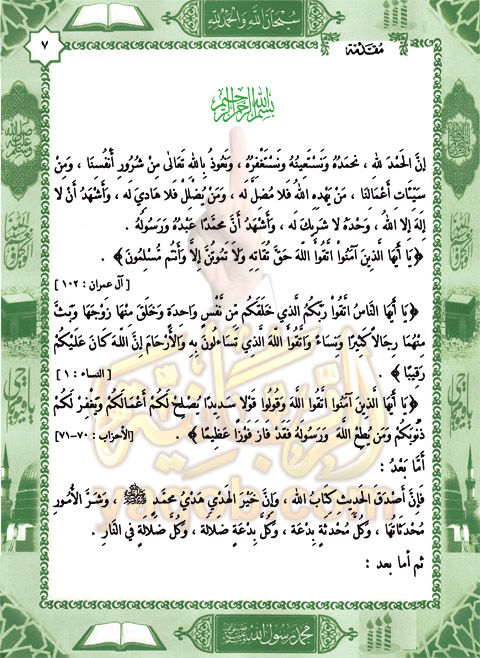 سُبْحَانَ اللَّهِ وَالْحَمْدُ لِلَّهِ
مُقَدِّمَة
٧
بسم الله الرحمن الرحيم
إِنَّ الْحَمْدَ لله ، نَحْمَدُهُ وَنَسْتَعِينُهُ وَنَسْتَغْفِرُهُ ، وَنَعُوذُ بِاللهِ تَعَالَى مِنْ شُرُورِ أَنْفُسِنَا ، وَمِنْ
سَيِّئَاتِ أَعْمَالنَا ، مَنْ يَهْدِهِ اللهُ فَلا مُضِلَّ لَه ، وَمَنْ يُضْلِلْ فَلا هَادِيَ لَه ، وَأَشْهَدُ أَنْ لا
إِلهَ إِلا اللهُ ، وَحْدَهُ لا شَرِيكَ لَه ، وَأَشْهَدُ أَنَّ مُحَمَّدًا عَبْدُهُ وَرَسُولُهُ .
﴿يَا أَيُّهَا الَّذِينَ آمَنُوا اتَّقُوا اللَّهَ حَقَّ تُقَاتِهِ وَلاَ تَمُوتُنَّ إِلاَّ وَأَنتُم مُّسْلِمُونَ﴾ .
[ آل عمران : ١٠٢ ]
﴿يَا أَيُّهَا النَّاسُ اتَّقُوا رَبَّكُمُ الَّذِي خَلَقَكُم مِّن نَّفْسٍ وَاحِدَةٍ وَخَلَقَ مِنْهَا زَوْجَهَا وَبَثَّ
مِنْهُمَا رِجَالاً كَثِيرًا وَنِسَاءً وَاتَّقُوا اللَّهَ الَّذِي تَسَاءَلُونَ بِهِ وَالأَرْحَامَ إِنَّ اللَّهَ كَانَ عَلَيْكُمْ
رَقِيبًا﴾ .
[النساء : ١٠]
﴿يَا أَيُّهَا الَّذِينَ آمَنُوا اتَّقُوا اللَّهَ وَقُولُوا قَوْلاً سَدِيدًا يُصْلِحْ لَكُمْ أَعْمَالَكُمْ وَيَغْفِرْ لَكُمْ
ذُنُوبَكُمْ وَمَن يُطِعْ اللَّهَ وَرَسُولَهُ فَقَدْ فَازَ فَوْزًا عَظِيمًا﴾ .
[الأحزاب : ٧٠-٧١]
أَمَّا بَعْدُ :
فَإِنَّ أَصْدَقَ الْحَدِيثِ كِتَابُ الله ، وَإِنَّ خَيْرَ الهَدْيِ هَدْيُ مُحَمَّدٍ ﷺ ، وَشَرَّ الأُمُورِ
مُحْدَثَاتُهَا ، وَكُلُّ مُحْدَثَةٍ بِدْعَة ، وَكُلَّ بِدْعَةٍ ضَلالَة ، وَكُلَّ ضَلالَةٍ فِي النَّارِ .
ثم أما بعد :
الربانية
yaqob.com
محمد رسول الله